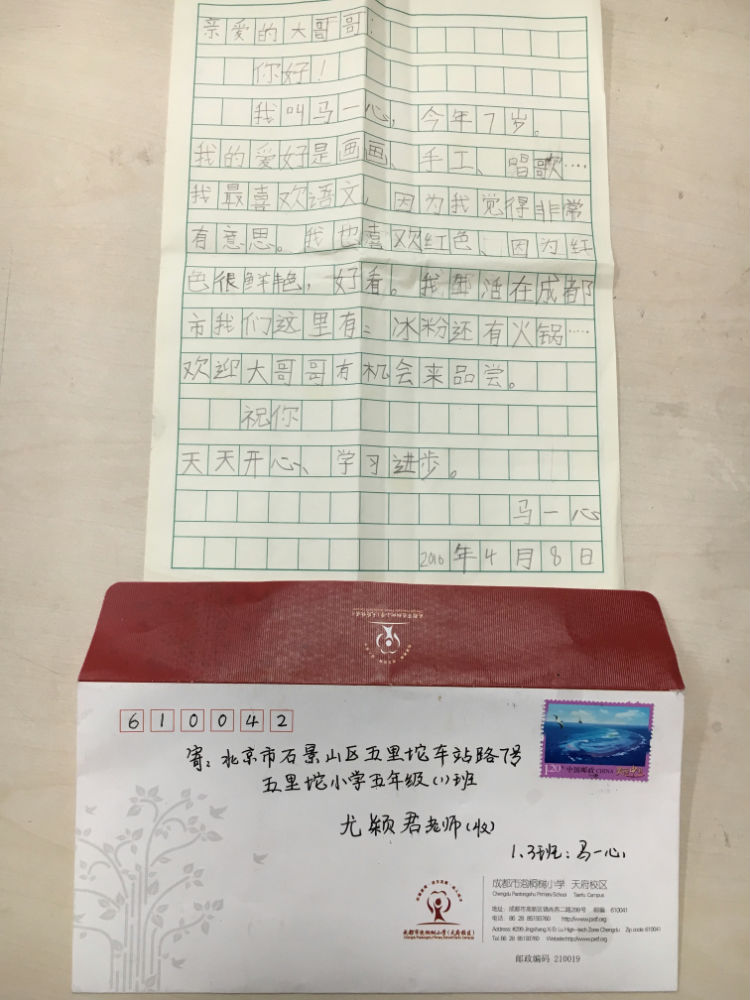 亲爱的大哥哥：
你好！
我叫马一心，今年7岁。
我的爱好是画画、手工、唱歌……
我最喜欢语文，因为我觉得非常
有意思。我也喜欢红色、因为红
色很鲜艳，好看。我生活在成都
市我们这里有：冰粉还有火锅……
欢迎大哥哥有机会来品尝。
祝你
天天开心、学习进步。
马一心
2016年4月8日
610042
1.20元 中国邮政 CHINA
寄：北京市石景山区五里坨车站路7号
五里坨小学五年级(1)班
尤颖君老师(收)
1.3班：马一心
成都市泡桐树小学 天府校区
Chengdu Paotongshu Primary School Tianfu Campus
地址：成都市高新区锦尚西二路299号 邮编 610041
电话 86 28 85193760 Website:http://www.pxtf.org
Address:#299 Jingshang Xi Er Lu High-tech Zone Chengdu Zip code 610041
Tel 86 28 85193760 Website:http://www.pxtf.org
成都市泡桐树小学(天府校区)
邮政编码 210019